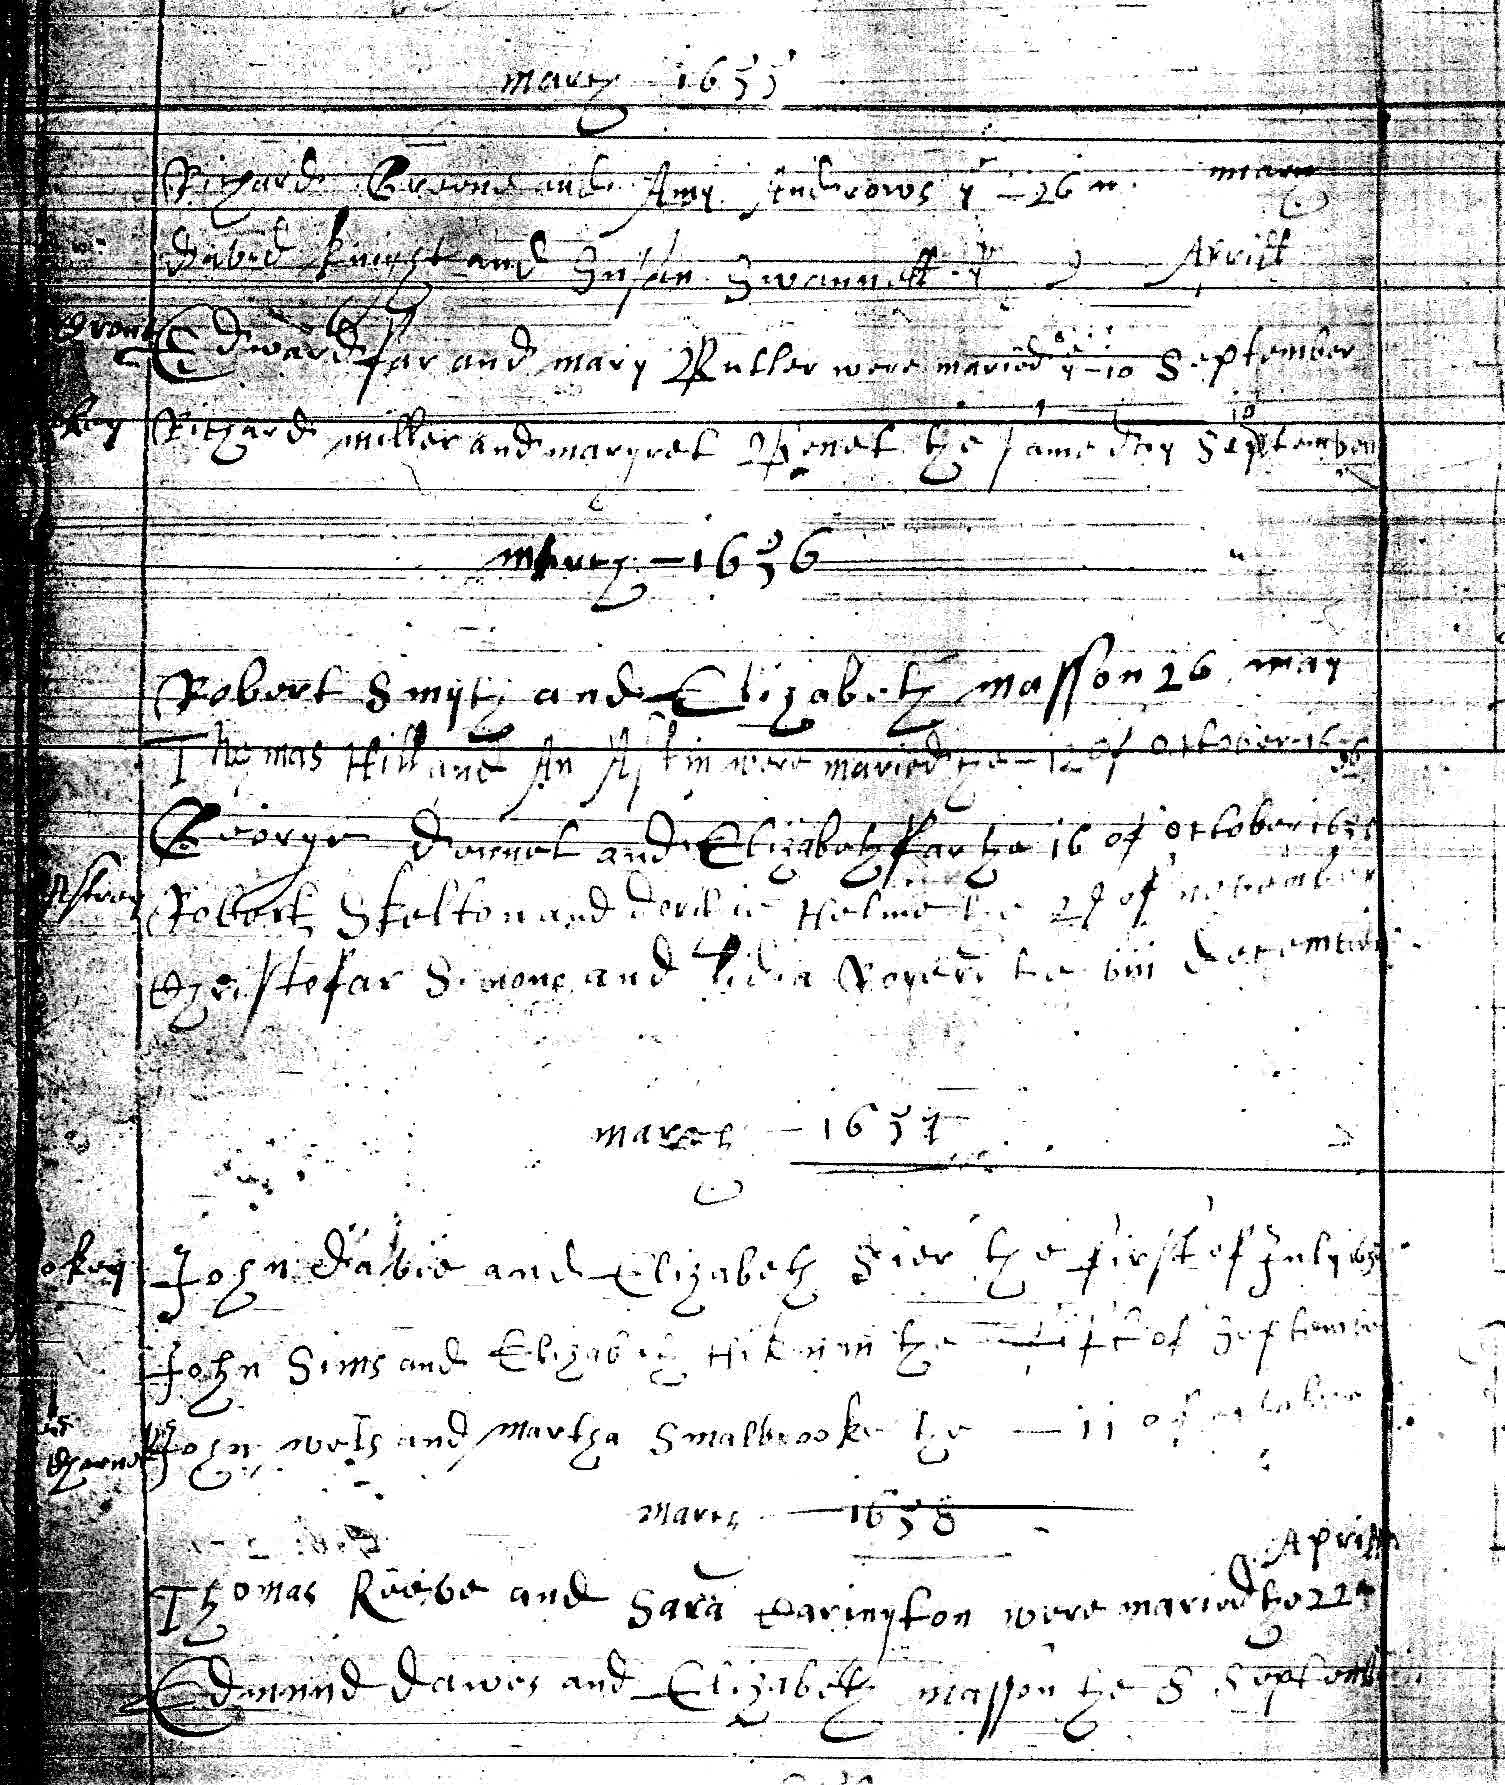 march 1635
Richard Greene and Amy Androws yͤ - 26 march
david knight and Susan Swannell yͤ 2 Aprill
Edward far and mary Butler were maried yͤ - 10 September
okey Richard miller and margret Benet the same day September
march - 1636
Robert Smyth and Elizabeth masson 26 may
Thomas Hill and An Astin were maried the - 12 of october 1636
George dennet and Elizabeth far the 16 of october 1636
Robert Skelton and Helme the 27 of november
Christofar Simons and Lidia Rogers the viii december
march - 1637
okey John davie and Elizabeth Sier the first of July
John Sims and Elizabeth the of September
John wels and martha Smalbrooke the - 11 of october
march - 1638
Aprill
Thomas Reeve and Sara Carington were maried the 22
Edmund dawes and Elizabeth masson the 8 September